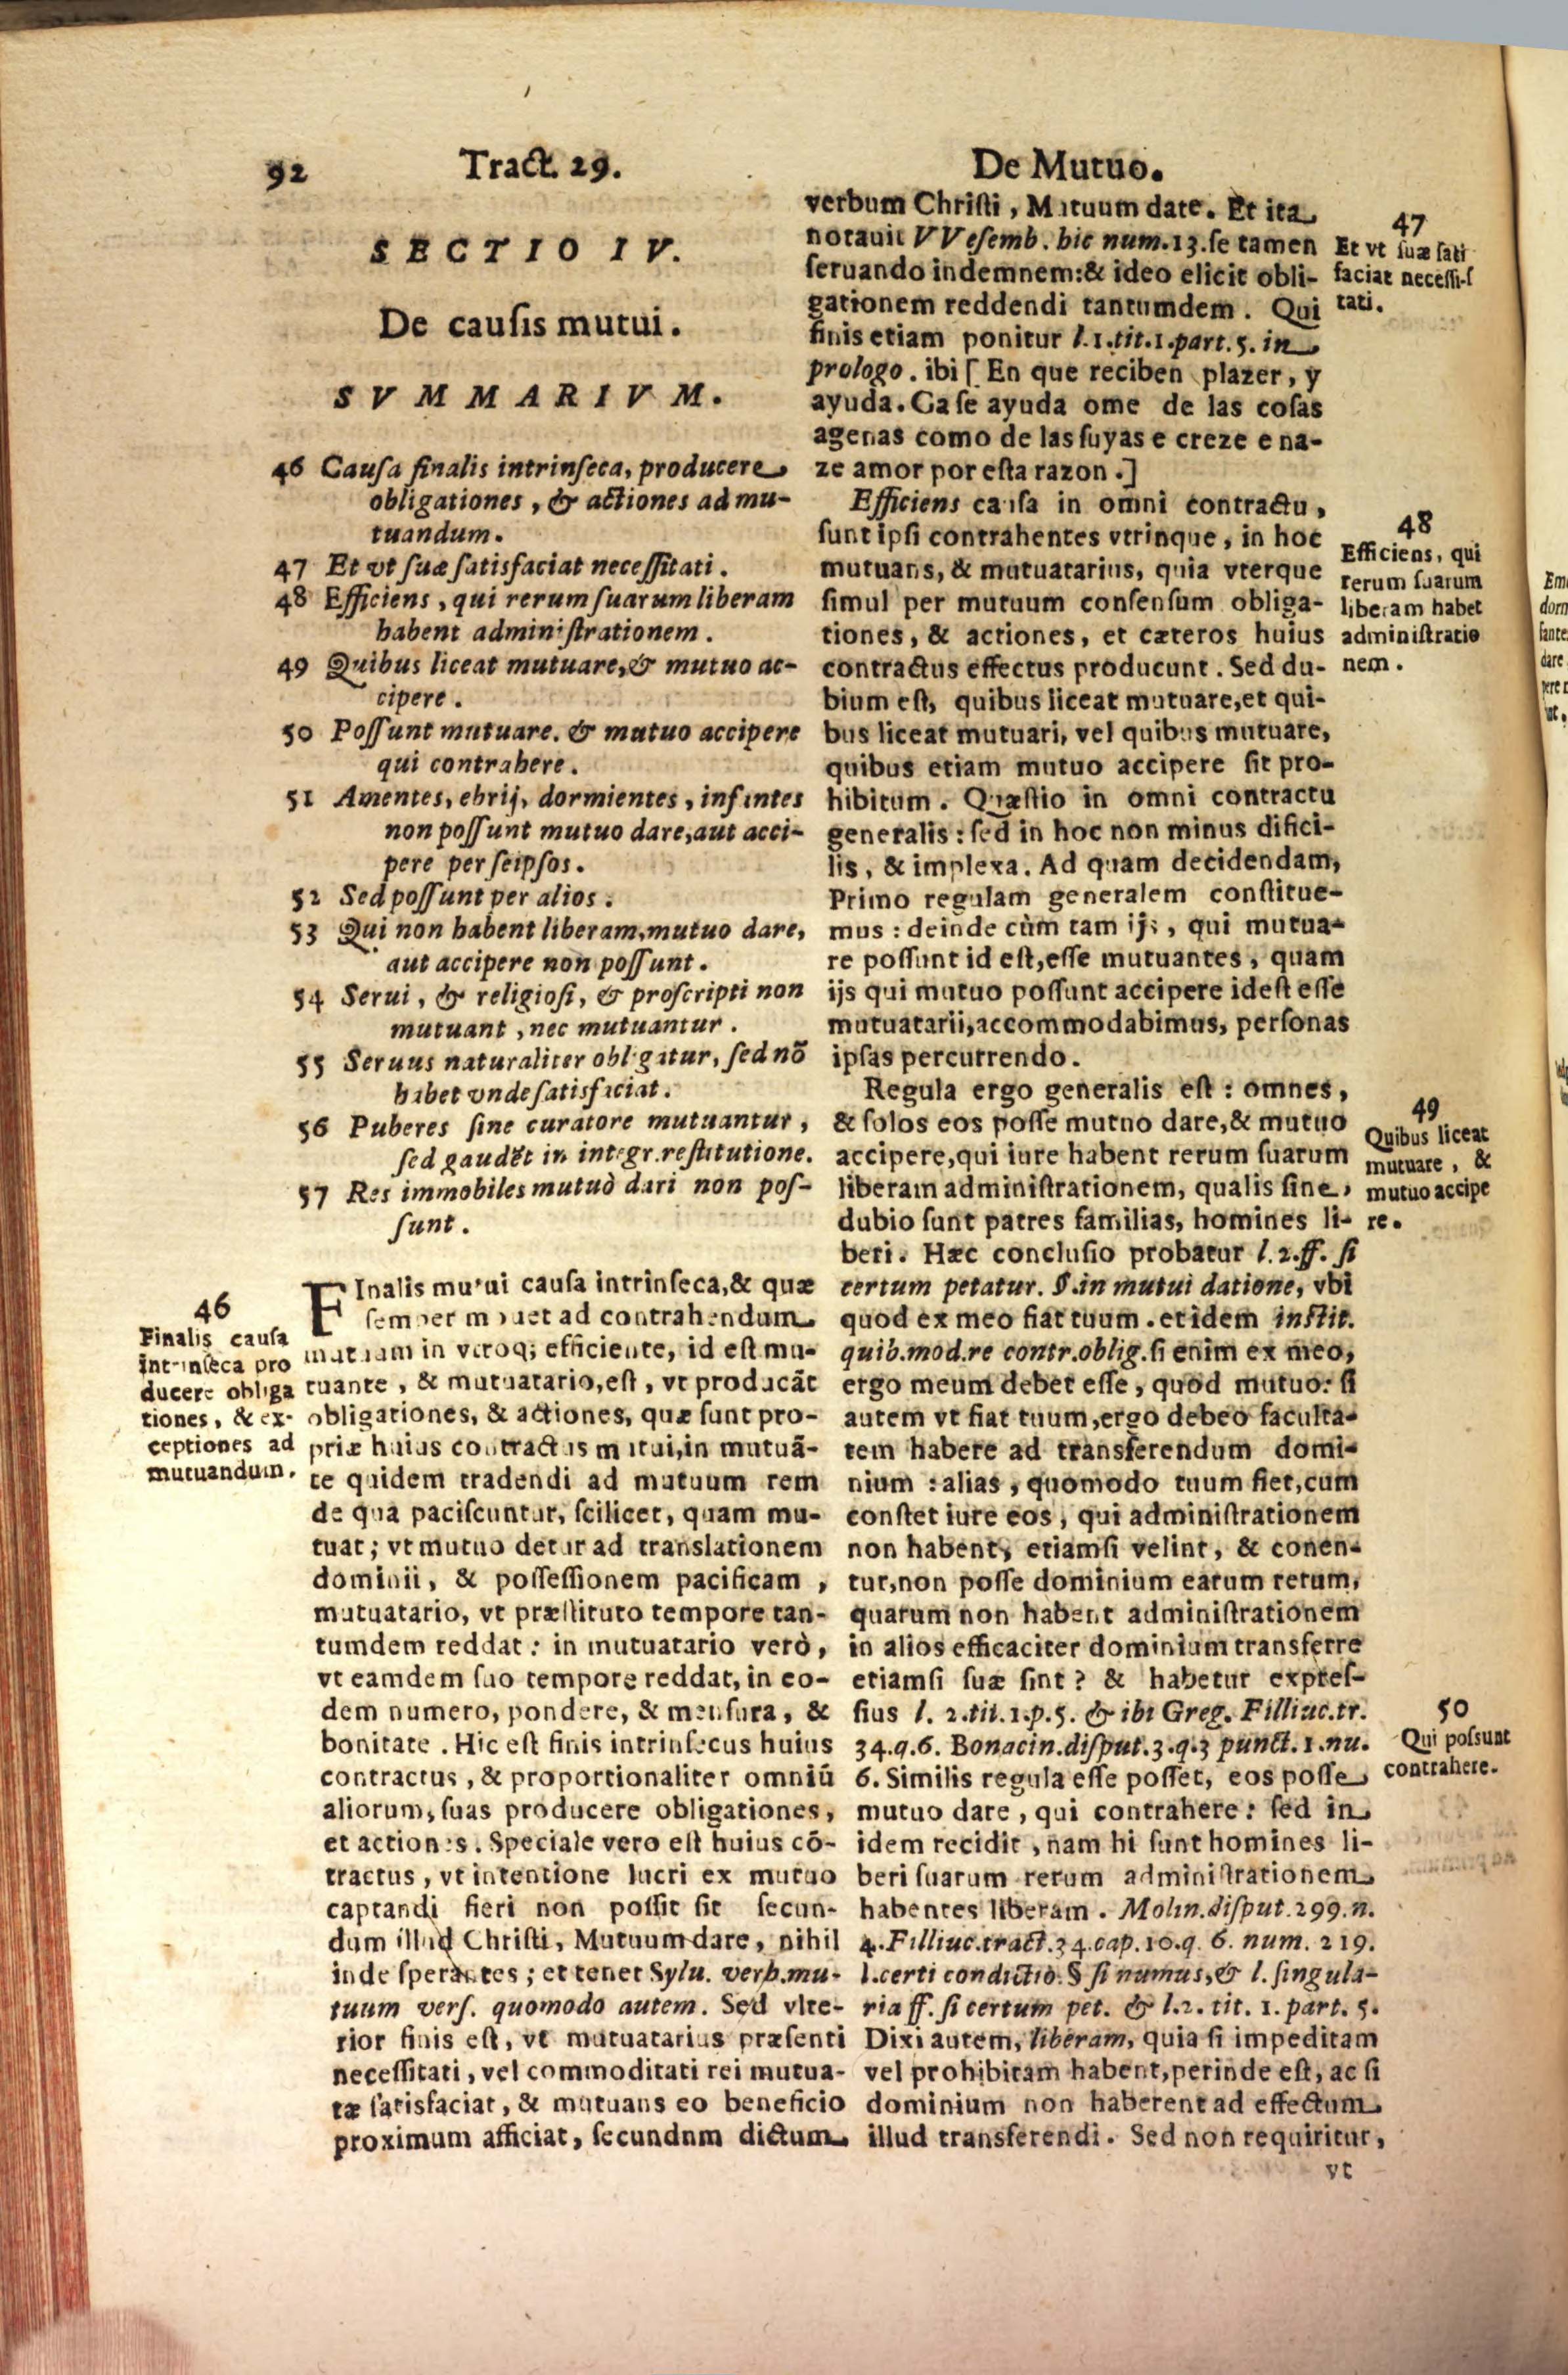 92 Tract. 29. De Mutuo.
SECTIO IV.
De causis mutui.
SVMMARIVM.
46 Causa finalis intrinseca, producere
obligationes, & actiones ad mu-
tuandum.
47 Et vt suæ satisfaciat necessitati.
48 Efficiens, qui rerum suarum liberam
habent administrationem.
49 Quibus liceat mutuare, & mutuo ac-
cipere.
50 Possunt mutuare. & mutuo accipere
qui contrahere.
51 Amentes, ebrij, dormientes, infantes
non possunt mutuo dare, aut acci-
pere per seipsos.
52 Sed possunt per alios.
53 Qui non habent liberam, mutuo dare,
aut accipere non possunt.
54 Serui, & religiosi, & proscripti non
mutuant, nec mutuantur.
55 Seruus naturaliter obligatur, sed nõ
habet vnde satisfaciat.
56 Puberes sine curatore mutuantur,
sed gaudẽt in integr. restitutione.
57 Res immobiles mutuò dari non pos-
sunt.
46
Finalis causa
intrinseca pro
ducere obliga
tiones, & ex-
ceptiones ad
mutuandum.
FInalis mutui causa intrinseca, & quæ
semper mouet ad contrahendum
mutuum in vtroq; efficiente, id est mu-
tuante, & mutuatario, est, vt producãt
obligationes, & actiones, quæ sunt pro-
priæ huius contractus mutui, in mutuã-
te quidem tradendi ad mutuum rem
de qua paciscuntur, scilicet, quam mu-
tuat; vt mutuo detur ad translationem
dominii, & possessionem pacificam,
mutuatario, vt præstituto tempore tan-
tumdem reddat: in mutuatario verò,
vt eamdem suo tempore reddat, in eo-
dem numero, pondere, & mensura, &
bonitate. Hic est finis intrinsecus huius
contractus, & proportionaliter omniũ
aliorum, suas producere obligationes,
et actiones. Speciale vero est huius cõ-
tractus, vt intentione lucri ex mutuo
captandi fieri non possit sit secun-
dum illud Christi, Mutuum dare, nihil
inde sperantes; et tenet Sylu. verb. mu-
tuum vers. quomodo autem. Sed vlte-
rior finis est, vt mutuatarius præsenti
necessitati, vel commoditati rei mutua-
tæ satisfaciat, & mutuans eo beneficio
proximum afficiat, secundnm dictum
verbum Christi, Mutuum date. Et ita
notauit VVesemb. hic num. 13. se tamen
seruando indemnem: & ideo elicit obli-
gationem reddendi tantumdem. Qui
finis etiam ponitur l. 1. tit. 1. part. 5. in
prologo. ibi [En que reciben plazer, y
ayuda. Ca se ayuda ome de las cosas
agenas como de las suyas e creze e na-
ze amor por esta razon.]
47
Et vt suæ sati
faciat necessi-s
tati.
Efficiens causa in omni contractu,
sunt ipsi contrahentes vtrinque, in hoc
mutuans, & mutuatarius, quia vterque
simul per mutuum consensum obliga-
tiones, & actiones, et cæteros huius
contractus effectus producunt. Sed du-
bium est, quibus liceat mutuare, et qui-
bus liceat mutuari, vel quibus mutuare,
quibus etiam mutuo accipere sit pro-
hibitum. Quæstio in omni contractu
generalis: sed in hoc non minus difici-
lis, & implexa. Ad quam decidendam,
Primo regulam generalem constitue-
mus: deinde cùm tam ijs, qui mutua-
re possunt id est, esse mutuantes, quam
ijs qui mutuo possunt accipere idest esse
mutuatarii, accommodabimus, personas
ipsas percurrendo.
48
Efficiens, qui
rerum suarum
liberam habet
administratio
nem.
Regula ergo generalis est: omnes,
& solos eos posse mutuo dare, & mutuo
accipere, qui iure habent rerum suarum
liberam administrationem, qualis sine
dubio sunt patres familias, homines li-
beri. Hæc conclusio probatur l. 2. ff. si
certum petatur. §. in mutui datione, vbi
quod ex meo fiat tuum. et idem instit.
quib. mod. re contr. oblig. si enim ex meo,
ergo meum debet esse, quod mutuo: si
autem vt fiat tuum, ergo debeo faculta-
tem habere ad transferendum domi-
nium: alias, quomodo tuum fiet, cum
constet iure eos, qui administrationem
non habent, etiamsi velint, & conen-
tur, non posse dominium earum rerum,
quarum non habent administrationem
in alios efficaciter dominium transferre
etiamsi suæ sint? & habetur expres-
sius l. 2. tit. 1. p. 5. & ibi Greg. Filliuc. tr.
34. q. 6. Bonacin. disput. 3. q. 3 punct. 1. nu.
6. Similis regula esse posset, eos posse
mutuo dare, qui contrahere: sed in
idem recidit, nam hi sunt homines li-
beri suarum rerum administrationem
habentes liberam. Molin. disput. 299. n.
4. Filliuc. tract. 34. cap. 10. q. 6. num. 219.
l. certi condictio. § si numus, & l. singula-
ria ff. si certum pet. & l. 2. tit. 1. part. 5.
Dixi autem, liberam, quia si impeditam
vel prohibitam habent, perinde est, ac si
dominium non haberent ad effectum
illud transferendi. Sed non requiritur,
vt
49
Quibus liceat
mutuare, &
mutuo accipe
re.
50
Qui possunt
contrahere.